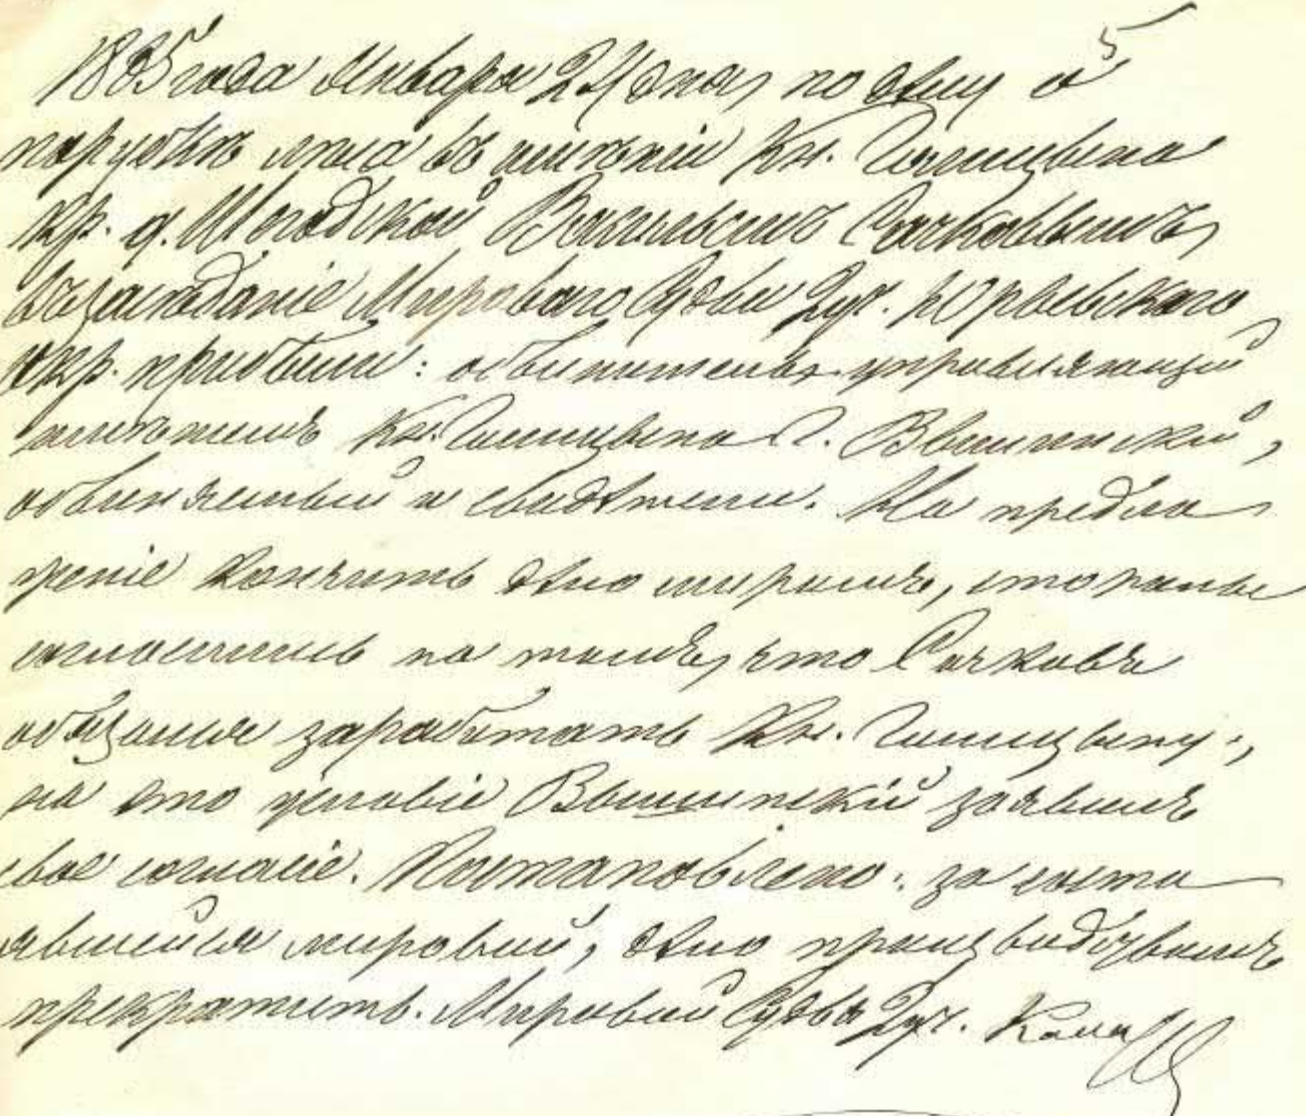 5
1885 года Января 24 дня, по делу о
порубке леса въ имѣніи Кн. Голицына
кр. д. Шегодской Васильемъ Сачковымъ,
въ заседаніе Мироваго Судьи 2 уч. Юрьевскаго
окр. прибыли: обвинитель управляющій
имѣніемъ Кн. Голицына Г. Вышинскій,
обвиняемый и свидѣтели. На предло
женіе кончить дѣло миромъ, стороны
согласились на томъ, что Сачковъ
обязался заработать Кн. Голицыну,
на это условіе Вышинскій заявилъ
свое согласіе. Постановлено: за соста
явшейся мировой, дѣло производствомъ
прекратить. Мировой Судья 2 уч.